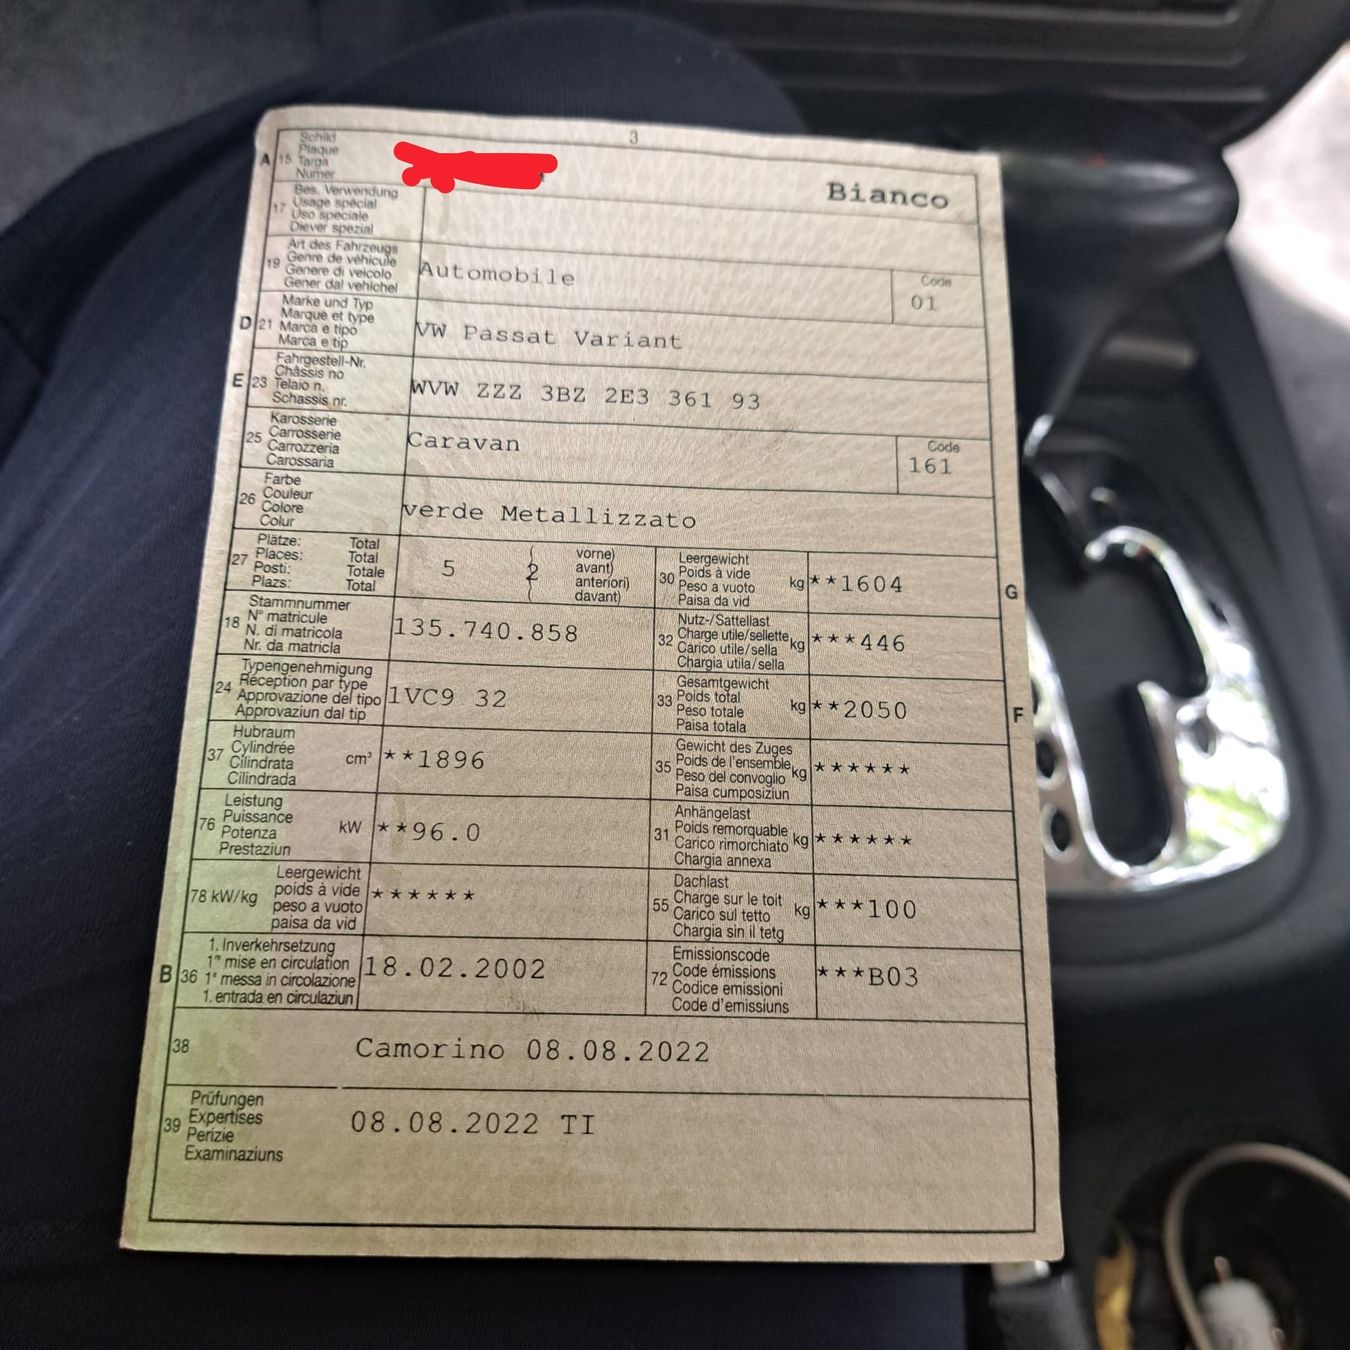 3
Schild
Plaque
A 15 Targa
Numer
Bianco
Bes. Verwendung
17 Usage spécial
Uso speciale
Diever spezial
Art des Fahrzeugs
19 Genre de véhicule
Genere di veicolo
Gener dal vehichel
Automobile
Code
01
Marke und Typ
D 21 Marque et type
Marca e tipo
Marca e tip
VW Passat Variant
Fahrgestell-Nr.
E 23 Châssis no
Telaio n.
Schassis nr.
WVW ZZZ 3BZ 2E3 361 93
Karosserie
25 Carrosserie
Carrozzeria
Carossaria
Caravan
Code
161
Farbe
26 Couleur
Colore
Colur
verde Metallizzato
Plätze: Total
27 Places: Total
Posti: Totale
Plazs: Total
5 2
vorne)
avant)
anteriori)
davant)
Leergewicht
30 Poids à vide
Peso a vuoto
Paisa da vid
kg **1604
G
Stammnummer
18 N° matricule
N. di matricola
Nr. da matricla
135.740.858
Nutz-/Sattellast
32 Charge utile/sellette
Carico utile/sella
Chargia utila/sella
kg ***446
Typengenehmigung
24 Réception par type
Approvazione del tipo
Approvaziun dal tip
1VC9 32
Gesamtgewicht
33 Poids total
Peso totale
Paisa totala
kg **2050
F
Hubraum
37 Cylindrée
Cilindrata
Cilindrada
cm³ **1896
Gewicht des Zuges
35 Poids de l'ensemble
Peso del convoglio
Paisa cumposiziun
kg ******
Leistung
76 Puissance
Potenza
Prestaziun
kW **96.0
Anhängelast
31 Poids remorquable
Carico rimorchiato
Chargia annexa
kg ******
78 kW/kg
Leergewicht
poids à vide
peso a vuoto
paisa da vid
******
Dachlast
55 Charge sur le toit
Carico sul tetto
Chargia sin il tetg
kg ***100
1. Inverkehrsetzung
B 36 1re mise en circulation
1a messa in circolazione
1. entrada en circulaziun
18.02.2002
Emissionscode
72 Code émissions
Codice emissioni
Code d'emissiuns
***B03
38 Camorino 08.08.2022
Prüfungen
39 Expertises
Perizie
Examinaziuns
08.08.2022 TI